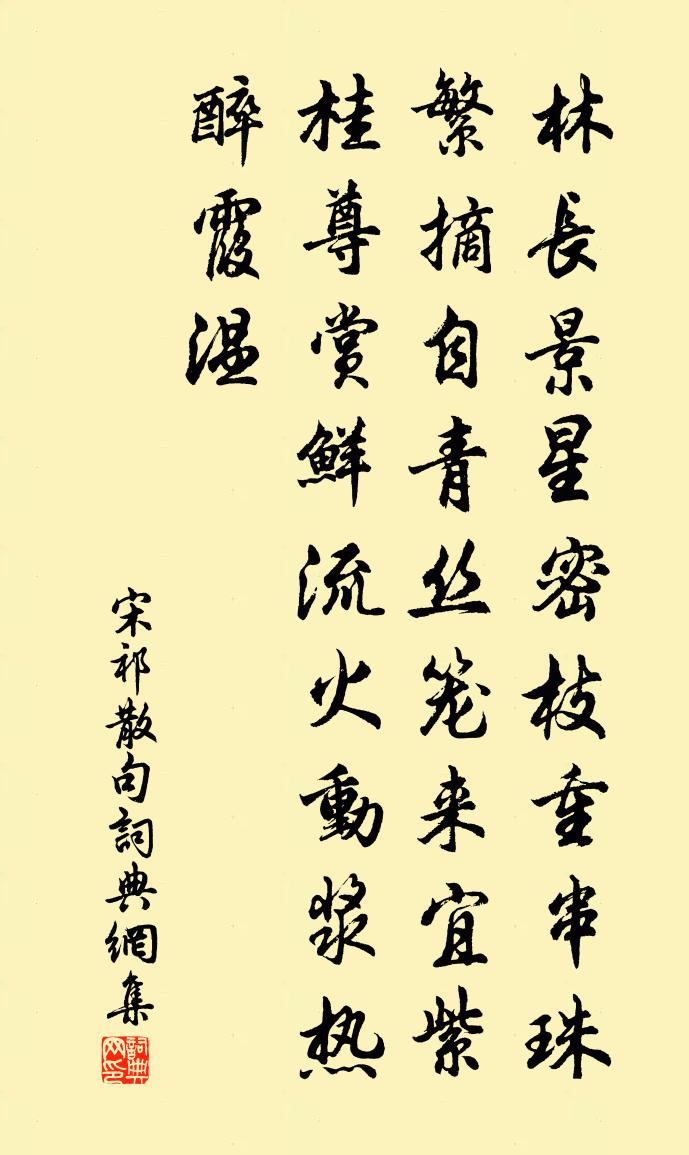 林長景星密枝重串珠
繁摘自青丝笼来宜紫
桂尊賞鮮流火動漿热
醉霞温
宋祁散句詞典網集
詞典网印